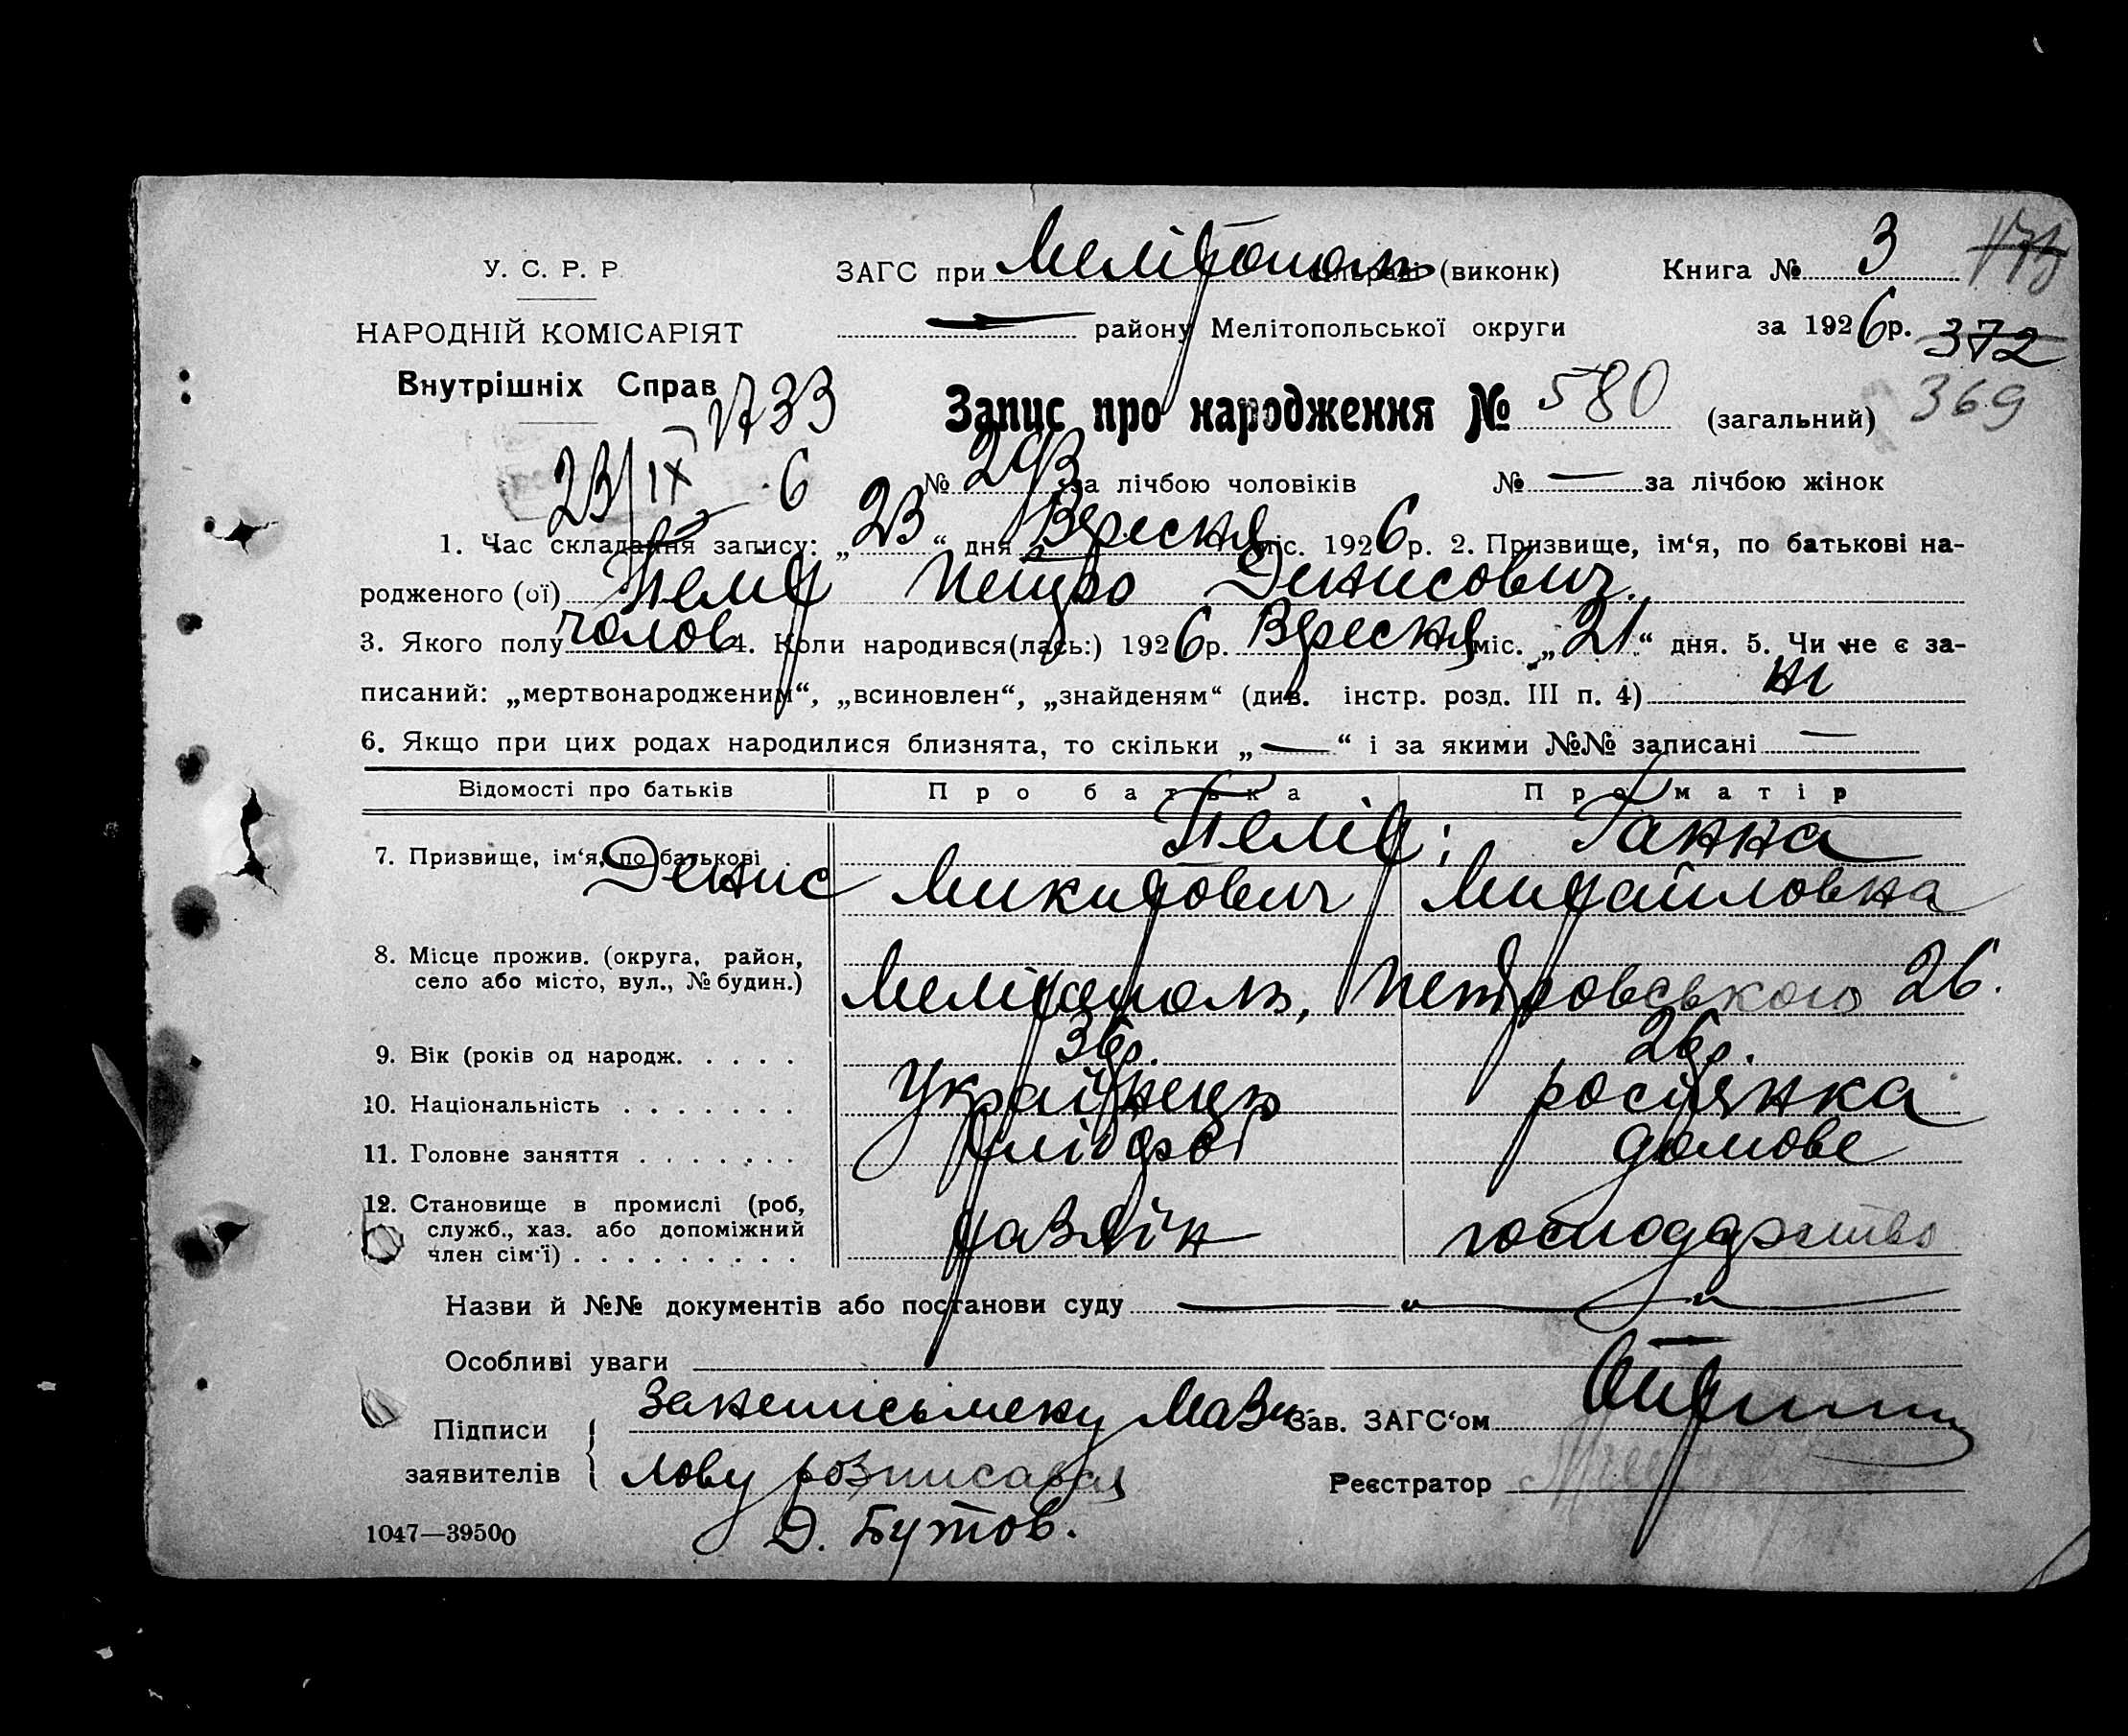 У. С. Р. Р.
НАРОДНІЙ КОМІСАРІЯТ
Внутрішніх Справ
1733
23/IX 6
ЗАГС при Мелітополь (виконк)
— району Мелітопольської округи
Книга № 3
за 1926 р.
372
369
Запис про народження № 580 (загальний)
№ 293 за лічбою чоловіків № — за лічбою жінок
1. Час складання запису: „23“ дня Вересня міс. 1926 р. 2. Призвище, ім‘я, по батькові на-
родженого (ої) Петро Денисович.
3. Якого полу чолов 4. Коли народився(лась:) 1926 р. Вересня міс. „21“ дня. 5. Чи не є за-
писаний: „мертвонародженим“, „всиновлен“, „знайденям“ (див. інстр. розд. III п. 4) ні
6. Якщо при цих родах народилися близнята, то скільки „—“ і за якими №№ записані —
Відомості про батьків Про батька Про матір
7. Призвище, ім‘я, по батькові . Ганна
Денис Микитович Михайловна
8. Місце прожив. (округа, район,
село або місто, вул., № будин.) Мелітополь, Петровського 26.
9. Вік (років од народж. . . . . 36р. 26р.
10. Національність . . . . . . . Українець росіянка
11. Головне заняття . . . . . . . домове
12. Становище в промислі (роб,
служб., хаз. або допоміжний господарство
член сім‘ї) . . . . . . . . .
Назви й №№ документів або постанови суду — „ — „
Особливі уваги —
Підписи заявителів
За неписьмену
Зав. ЗАГС‘ом
лову розписався
Реєстратор
Д. Бутов.
1047—39500